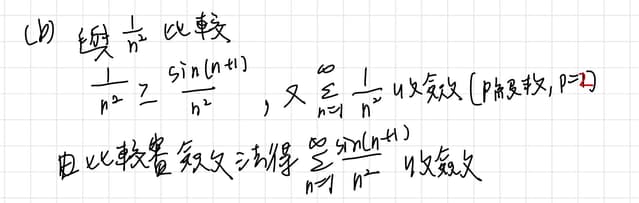 (b) 與 1/n² 比較
1/n² ≥ sin(n+1)/n² , 又 ∞∑n=1 1/n² 收斂 (p級數, p=2)
由比較審斂法得 ∞∑n=1 sin(n+1)/n² 收斂